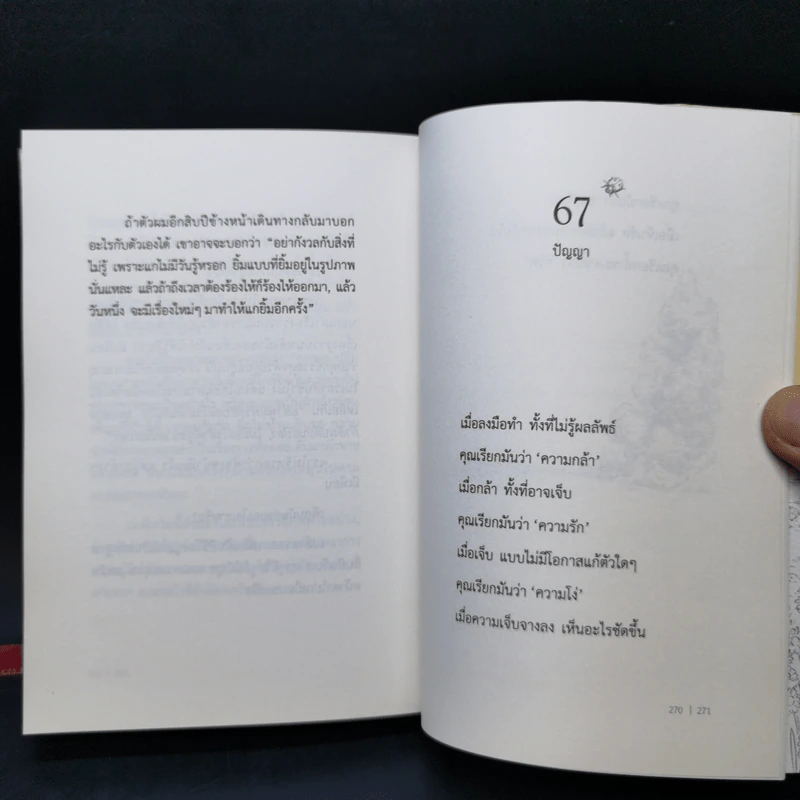 ถ้าตัวผมอีกสิบปีข้างหน้าเดินทางกลับมาบอก
อะไรกับตัวเองได้ เขาอาจจะบอกว่า “อย่ากังวลกับสิ่งที่
ไม่รู้ เพราะแกไม่มีวันรู้หรอก ยิ้มแบบที่ยิ้มอยู่ในรูปภาพ
นั่นแหละ แล้วถ้าถึงเวลาต้องร้องไห้ก็ร้องไห้ออกมา, แล้ว
วันหนึ่ง จะมีเรื่องใหม่ๆ มาทำให้แกยิ้มอีกครั้ง”
67
ปัญญา
เมื่อลงมือทำ ทั้งที่ไม่รู้ผลลัพธ์
คุณเรียกมันว่า ‘ความกล้า’
เมื่อกล้า ทั้งที่อาจเจ็บ
คุณเรียกมันว่า ‘ความรัก’
เมื่อเจ็บ แบบไม่มีโอกาสแก้ตัวใดๆ
คุณเรียกมันว่า ‘ความโง่’
เมื่อความเจ็บจางลง เห็นอะไรชัดขึ้น
270 | 271